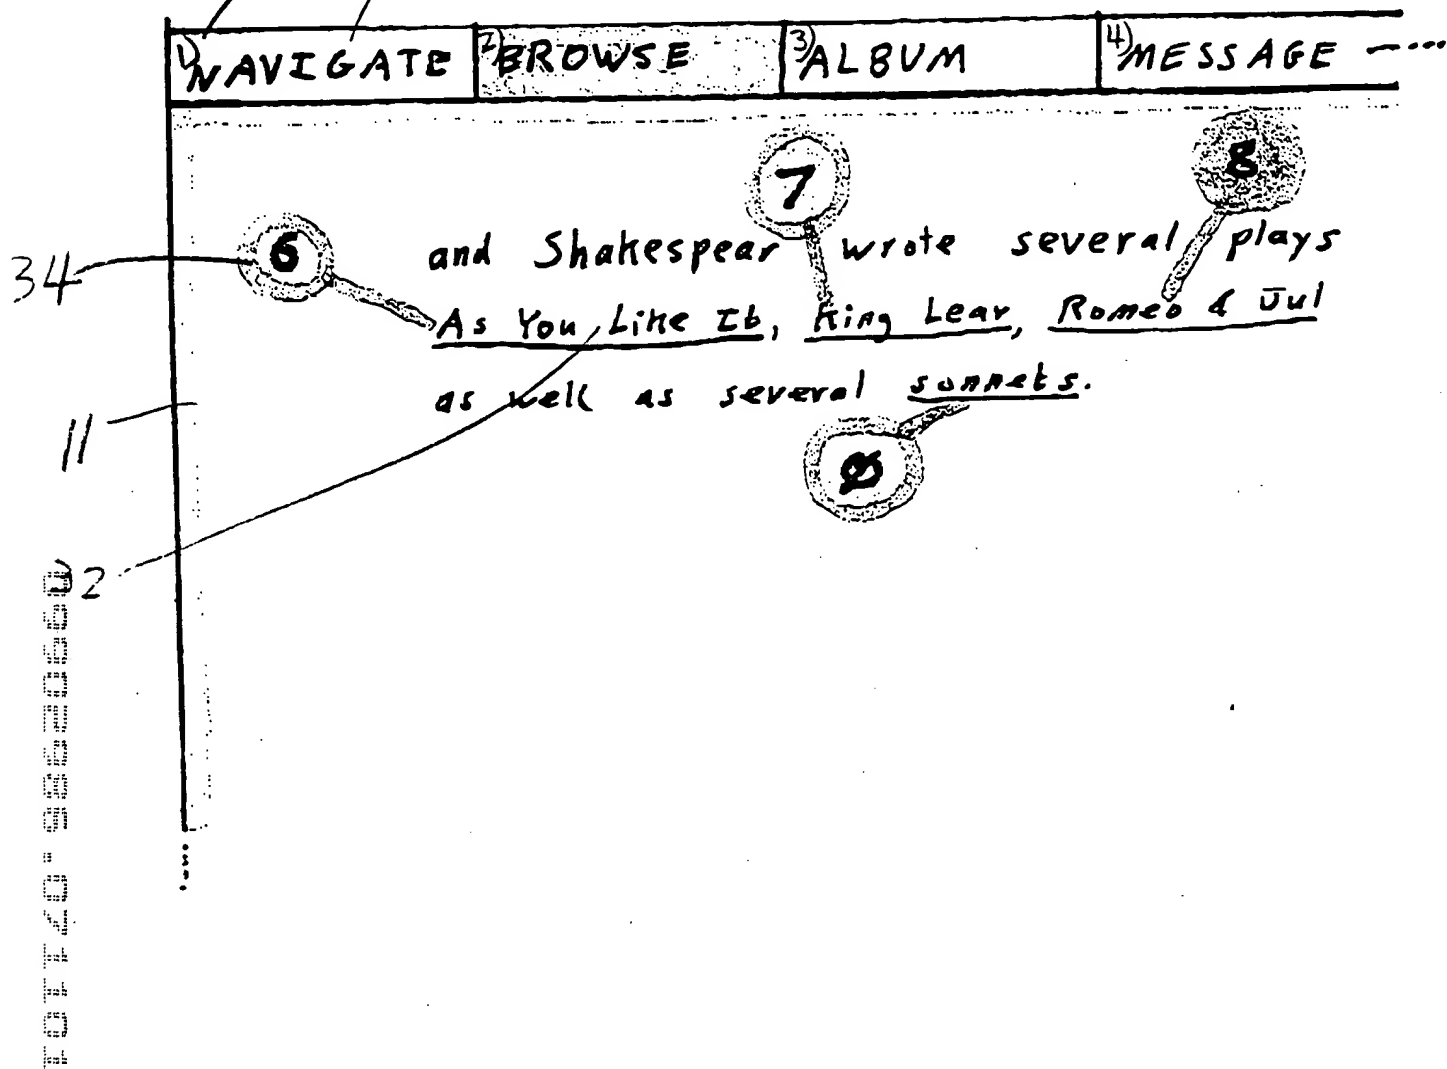 1) NAVIGATE 2) BROWSE 3) ALBUM 4) MESSAGE
7 8
6 and Shakespear wrote several plays
34
As You Like It, King Lear, Romeo & Jul
as well as several sonnets.
11
Ø
32